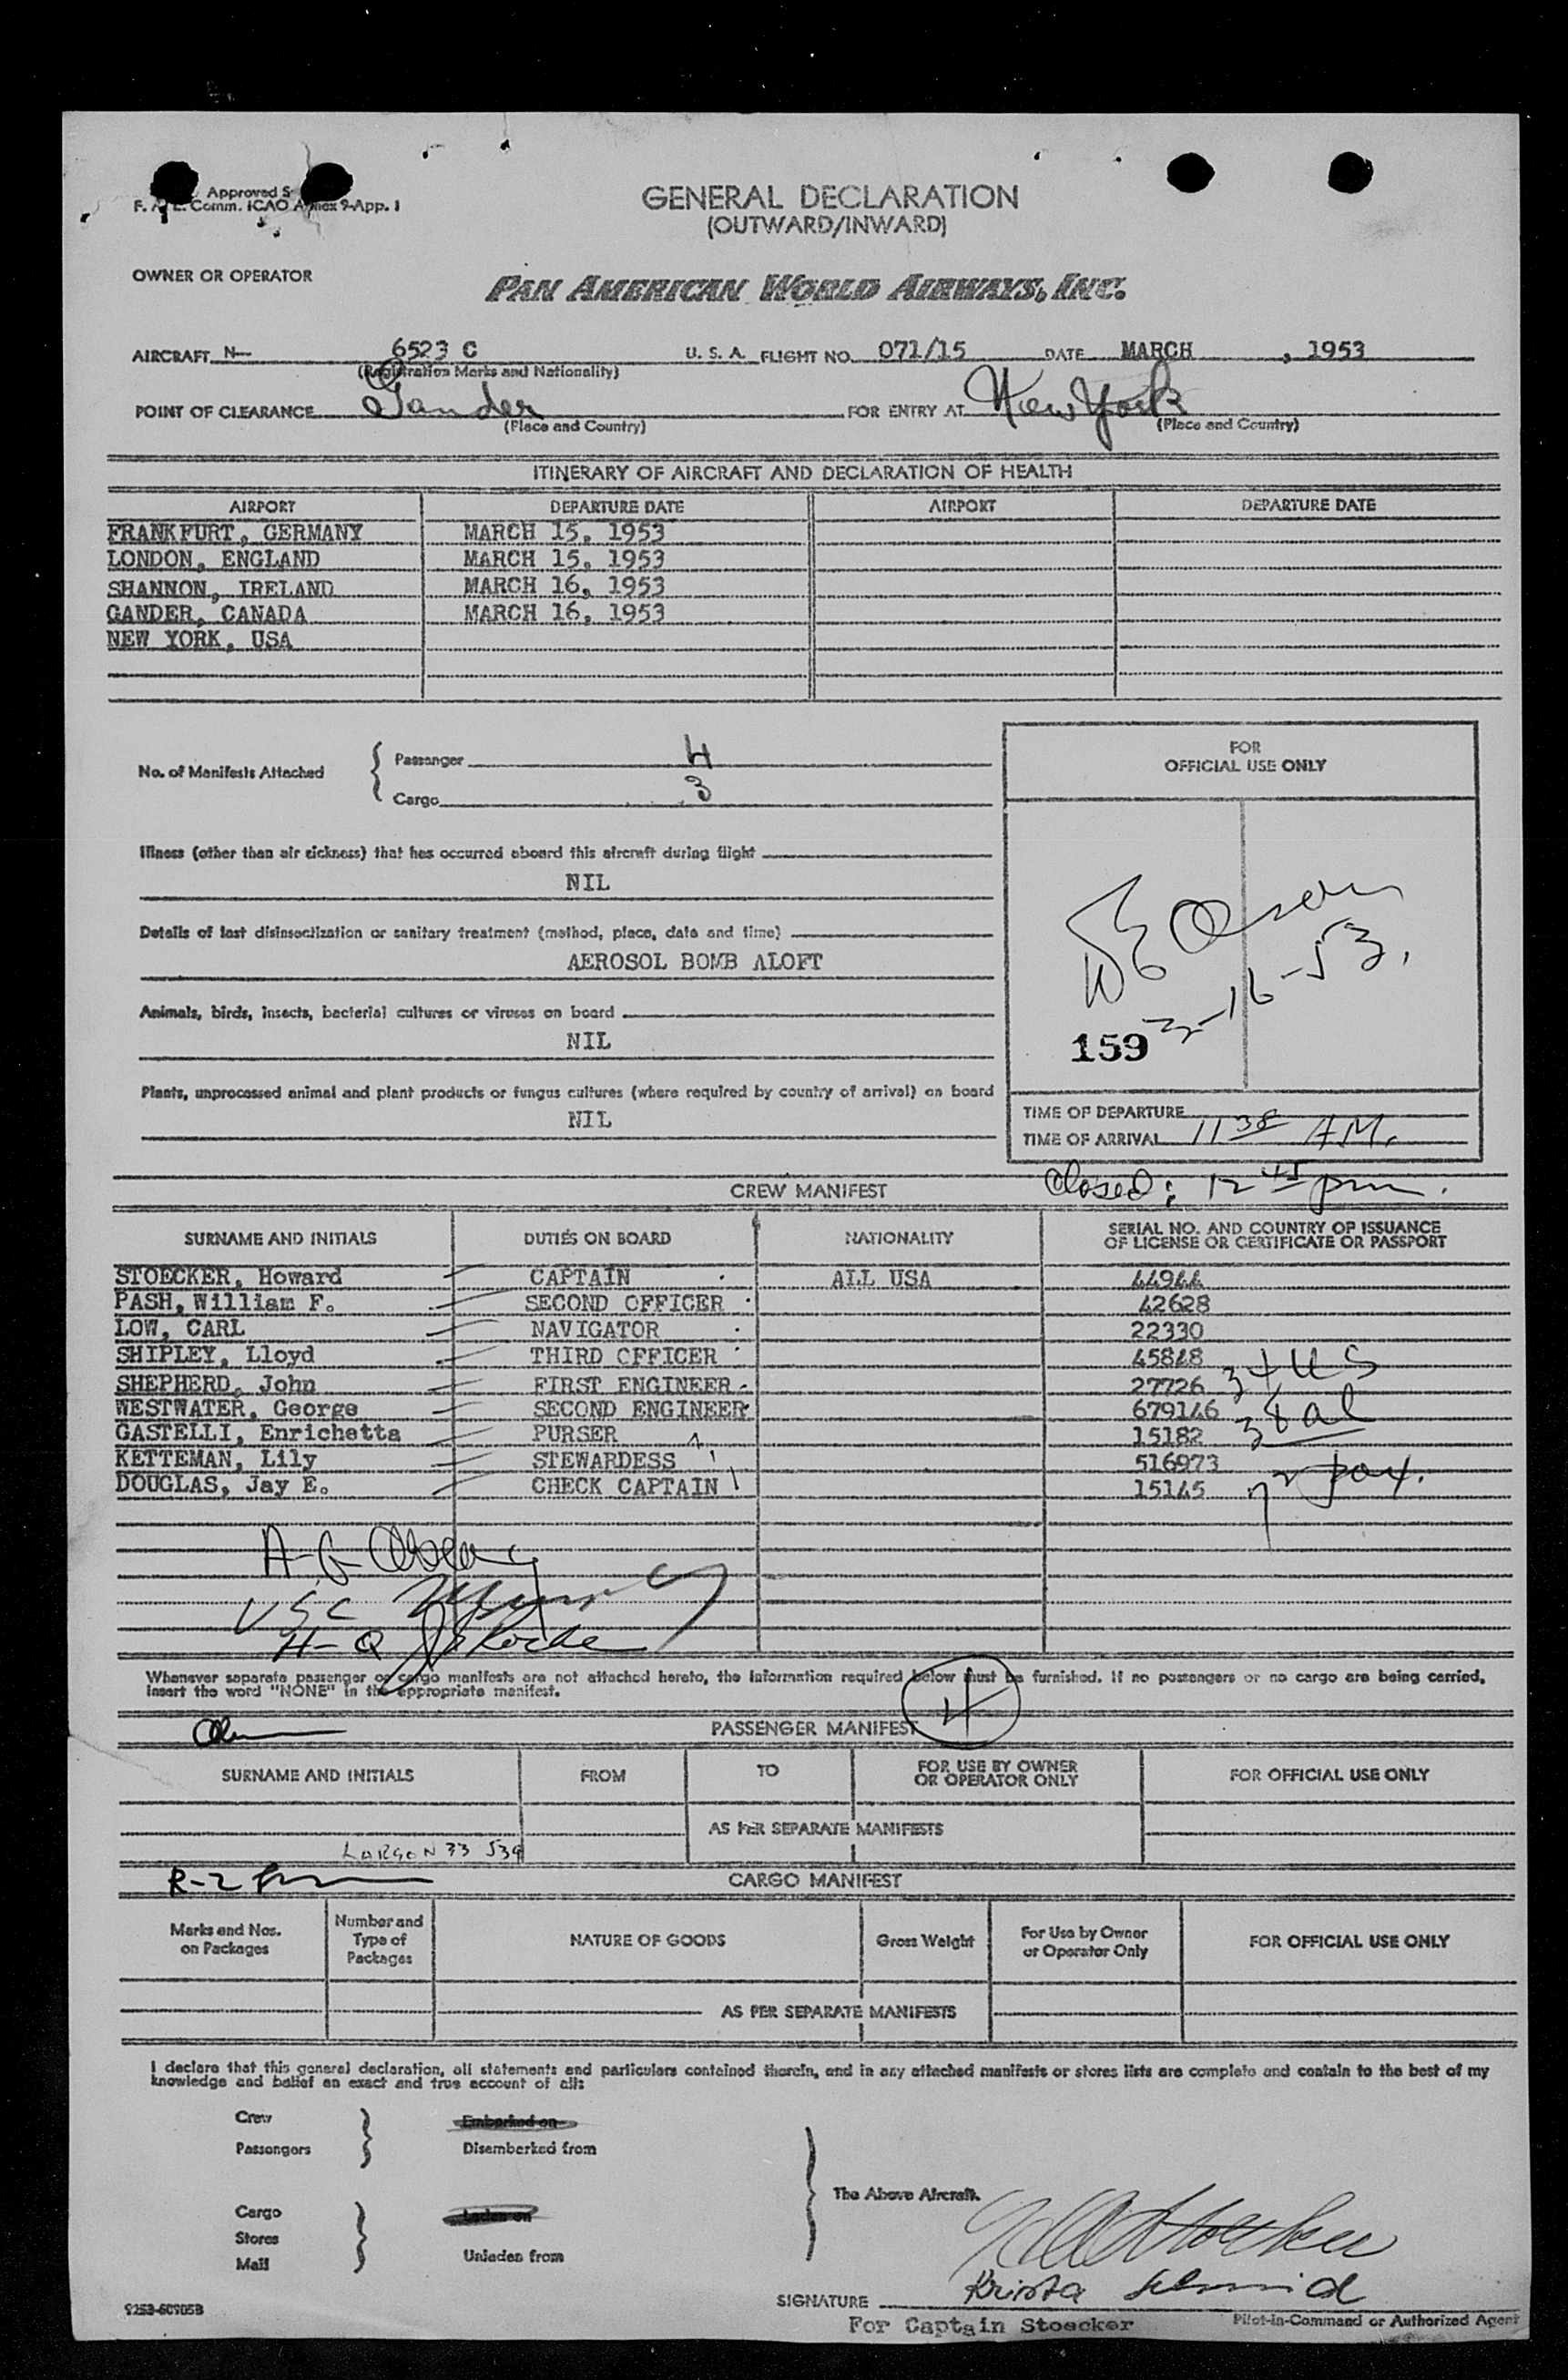 Approved
Comm. ICAO Annex 9-App. 1
GENERAL DECLARATION
(OUTWARD/INWARD)
OWNER OR OPERATOR
PAN AMERICAN WORLD AIRWAYS, INC.
AIRCRAFT N- 6523 C U. S. A. FLIGHT NO. 071/15 DATE MARCH , 1953
(Registration Marks and Nationality)
POINT OF CLEARANCE Gander FOR ENTRY AT New York
(Place and Country) (Place and Country)
ITINERARY OF AIRCRAFT AND DECLARATION OF HEALTH
AIRPORT DEPARTURE DATE AIRPORT DEPARTURE DATE
FRANKFURT, GERMANY MARCH 15, 1953
LONDON, ENGLAND MARCH 15, 1953
SHANNON, IRELAND MARCH 16, 1953
GANDER, CANADA MARCH 16, 1953
NEW YORK, USA
No. of Manifests Attached
Passenger 4
Cargo 3
FOR
OFFICIAL USE ONLY
Illness (other than air sickness) that has occurred aboard this aircraft during flight
NIL
Details of last disinsectization or sanitary treatment (method, place, date and time)
AEROSOL BOMB ALOFT
Animals, birds, insects, bacterial cultures or viruses on board
NIL
3-16-53.
159
Plants, unprocessed animal and plant products or fungus cultures (where required by country of arrival) on board
NIL
TIME OF DEPARTURE
TIME OF ARRIVAL 11 38 A.M.
Closed: 12 45 pm.
CREW MANIFEST
SURNAME AND INITIALS DUTIES ON BOARD NATIONALITY SERIAL NO. AND COUNTRY OF ISSUANCE
OF LICENSE OR CERTIFICATE OR PASSPORT
STOECKER, Howard CAPTAIN ALL USA 44944
PASH, William F. SECOND OFFICER 42628
LOW, CARL NAVIGATOR 22330
SHIPLEY, Lloyd THIRD OFFICER 45848
SHEPHERD, John FIRST ENGINEER 27726 34 US
WESTWATER, George SECOND ENGINEER 679146 38 al
GASTELLI, Enrichetta PURSER 15182
KETTEMAN, Lily STEWARDESS 516973 72 pax.
DOUGLAS, Jay E. CHECK CAPTAIN 15145
Whenever separate passenger or cargo manifests are not attached hereto, the information required below must be furnished. If no passengers or no cargo are being carried,
insert the word "NONE" in the appropriate manifest.
4
PASSENGER MANIFEST
SURNAME AND INITIALS FROM TO FOR USE BY OWNER
OR OPERATOR ONLY FOR OFFICIAL USE ONLY
AS PER SEPARATE MANIFESTS
LARSON 33 539
CARGO MANIFEST
Marks and Nos.
on Packages Number and
Type of
Packages NATURE OF GOODS Gross Weight For Use by Owner
or Operator Only FOR OFFICIAL USE ONLY
AS PER SEPARATE MANIFESTS
I declare that this general declaration, all statements and particulars contained therein, and in any attached manifests or stores lists are complete and contain to the best of my
knowledge and belief an exact and true account of all:
Crew Embarked on
Passengers Disembarked from
The Above Aircraft.
Cargo Laden on
Stores
Mail Unladen from
Krista Schmid
SIGNATURE
For Captain Stoecker Pilot-in-Command or Authorized Agent
9253-609053